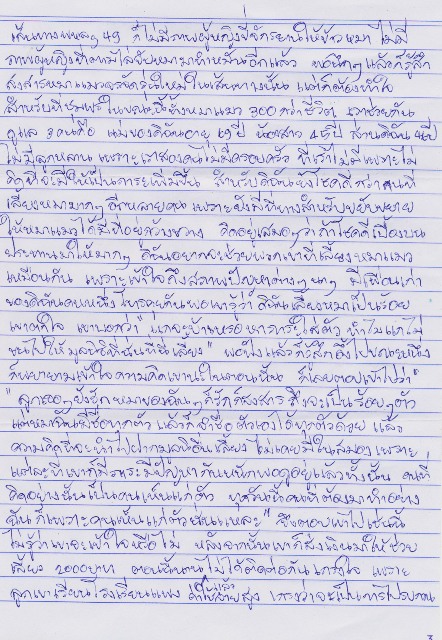 เส้นทางเพชรฯ 49 ก็ไม่มีภาพผู้หญิงขี่จักรยานให้ข้าวหมา ไม่มี
ภาพผู้หญิงที่ตามใส่จับหมามาทำหมันอีกแล้ว พอนึกๆ แล้วก็รู้สึก
สงสารหมาแมวจรจัดรุ่นใหม่ในเส้นทางนั้น แต่ก็ต้องทำใจ
สำหรับที่ชุมพรในขณะนี้ทั้งหมาแมว 300 กว่าชีวิต เราช่วยกัน
ดูแล 3 คนคือ แม่ของดิฉันอายุ 69 ปี น้องสาว 45 ปี ส่วนดิฉัน 47 ปี
ไม่มีลูกหลาน เพราะเราสองคนไม่มีครอบครัว ที่เราไม่มีเพราะไม่
คิดที่จะมีให้เป็นภาระเพิ่มขึ้น สำหรับดิฉันยังโชคดีกว่าคนที่
เลี้ยงหมามากๆ อีกหลายคน เพราะยังมีที่ทางสำหรับขยับขยาย
ให้หมาแมวได้มีที่อยู่กว้างขวาง คิดอยู่เสมอว่าถ้าโชคดีเบื้องบน
ประทานมาให้มากๆ ดิฉันอยากจะช่วยพวกเขาที่เลี้ยงหมาแมว
เหมือนกัน เพราะเข้าใจถึงสภาพปัญหาต่างๆ นๆ มีเพื่อนเก่า
ของดิฉันคนหนึ่ง โทรคุยกันพอเขารู้ว่าดิฉันเลี้ยงหมาเป็นร้อย
เขาตกใจ เขาบอกว่า "แกจะบ้าเหรอ หาภาระใส่ตัว ทำไมแกไม่
ขนไปให้มูลนิธิที่นั่นที่นี่เลี้ยง" พอฟังแล้วก็รู้สึกอึ้งไปขณะหนึ่ง
ก็พยายามเข้าใจความคิดเขานะในตอนนั้น ก็เลยตอบเขาไปว่า
"ลูกเธอๆ ยังรัก หมาของฉันๆ ก็รักก็สงสาร ถึงจะเป็นร้อยๆ ตัว
แต่หมาฉันมีชื่อทุกตัว แล้วก็จำชื่อตัวเองได้ทุกตัวด้วย แล้ว
ความคิดที่จะทำไปฝากมูลนิธิอื่นเลี้ยง ไม่เคยมีในสมอง เพราะ
แต่ละที่เขาก็มีภาระมีปัญหากันหนักพออยู่แล้วทั้งนั้น คนที่
คิดอย่างนั้นเป็นคนเห็นแก่ตัว ทุกวันนี้คนที่ต้องมาทำอย่าง
ฉัน ก็เพราะคนเห็นแก่ตัวนั่นแหละ" ซึ่งตอบเขาไปเช่นนี้
ไม่รู้ว่าเขาจะเข้าใจหรือไม่ หลังจากนั้นเขาก็ส่งเงินมาให้ช่วย
เลี้ยง 2000 บาท ตอนนี้เขาไม่ได้ติดต่อกัน เกรงใจ เพราะ
ลูกเขาเรียนโรงเรียนแพง ค่าใช้จ่ายสูง เกรงว่าจะเป็นการไปรบกวน